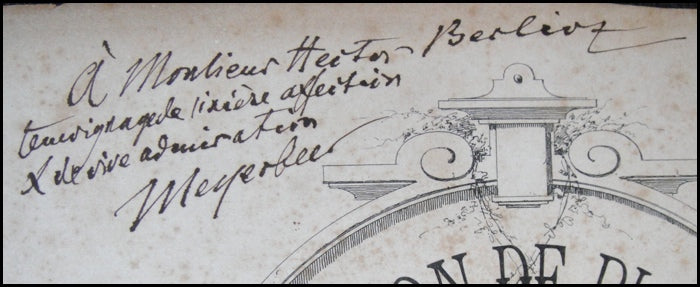 À Monsieur Hector Berlioz
temoignage de sincère affection
& de vive admiration
Meyerbeer
ON DE PL